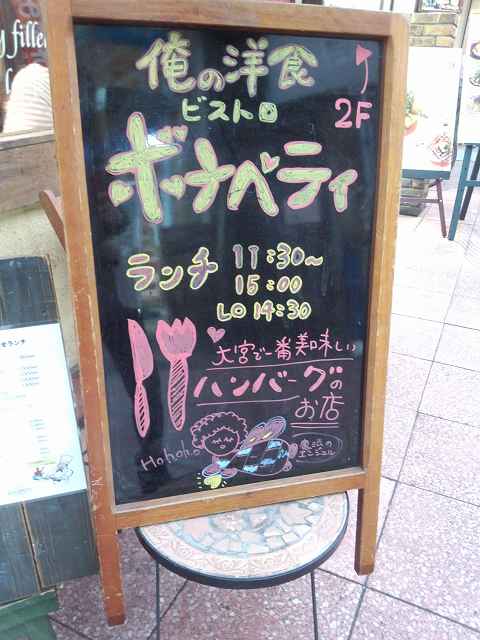 俺の洋食
2F
ビストロ
ボナペティ
ランチ 11:30~
15:00
LO 14:30
大宮で一番美味しい
ハンバーグの
お店
Hohoho
エンジェル
y fille